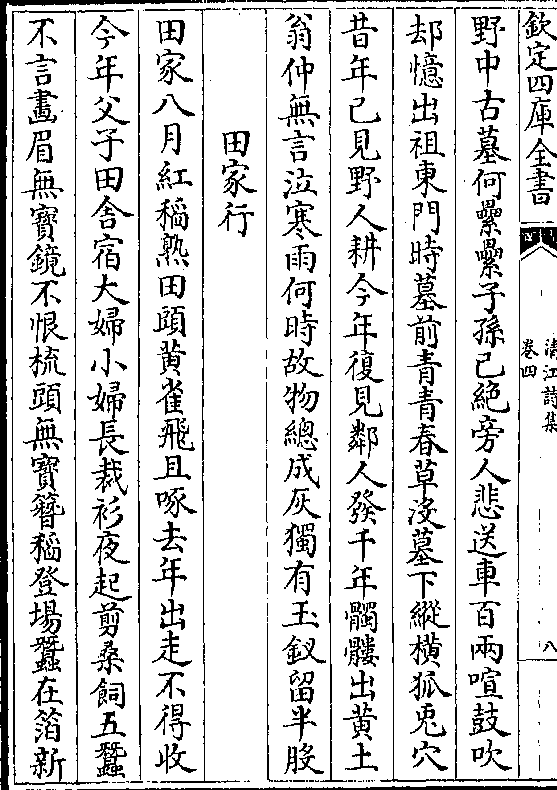 欽定四庫全書
清江詩集
卷四
八
野中古墓何纍纍子孫已絶旁人悲送車百兩喧鼓吹
却憶出祖東門時墓前青青春草没墓下縱橫狐兎穴
昔年已見野人耕今年復見鄰人發千年髑髏出黄土
翁仲無言泣寒雨何時故物總成灰獨有玉釵留半股
田家行
田家八月紅稻熟田頭黄雀飛且啄去年出走不得收
今年父子田舍宿大婦小婦長裁衫夜起剪桑飼五蠶
不言畫眉無寶鏡不恨梳頭無寶簪稻登場蠶在箔新